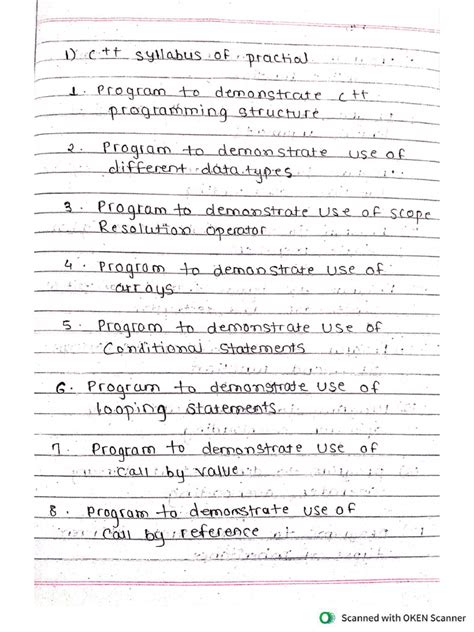 1) C++ syllabus of practial
1. Program to demonstrate C++
programming structure
2. Program to demonstrate use of
different data types
3. Program to demonstrate use of scope
Resolution operator
4. Program to demonstrate use of
arrays
5. Program to demonstrate use of
Conditional statements
6. Program to demonstrate use of
looping statements.
7. Program to demonstrate use of
call by value.
8. Program to demonstrate use of
call by reference
Scanned with OKEN Scanner